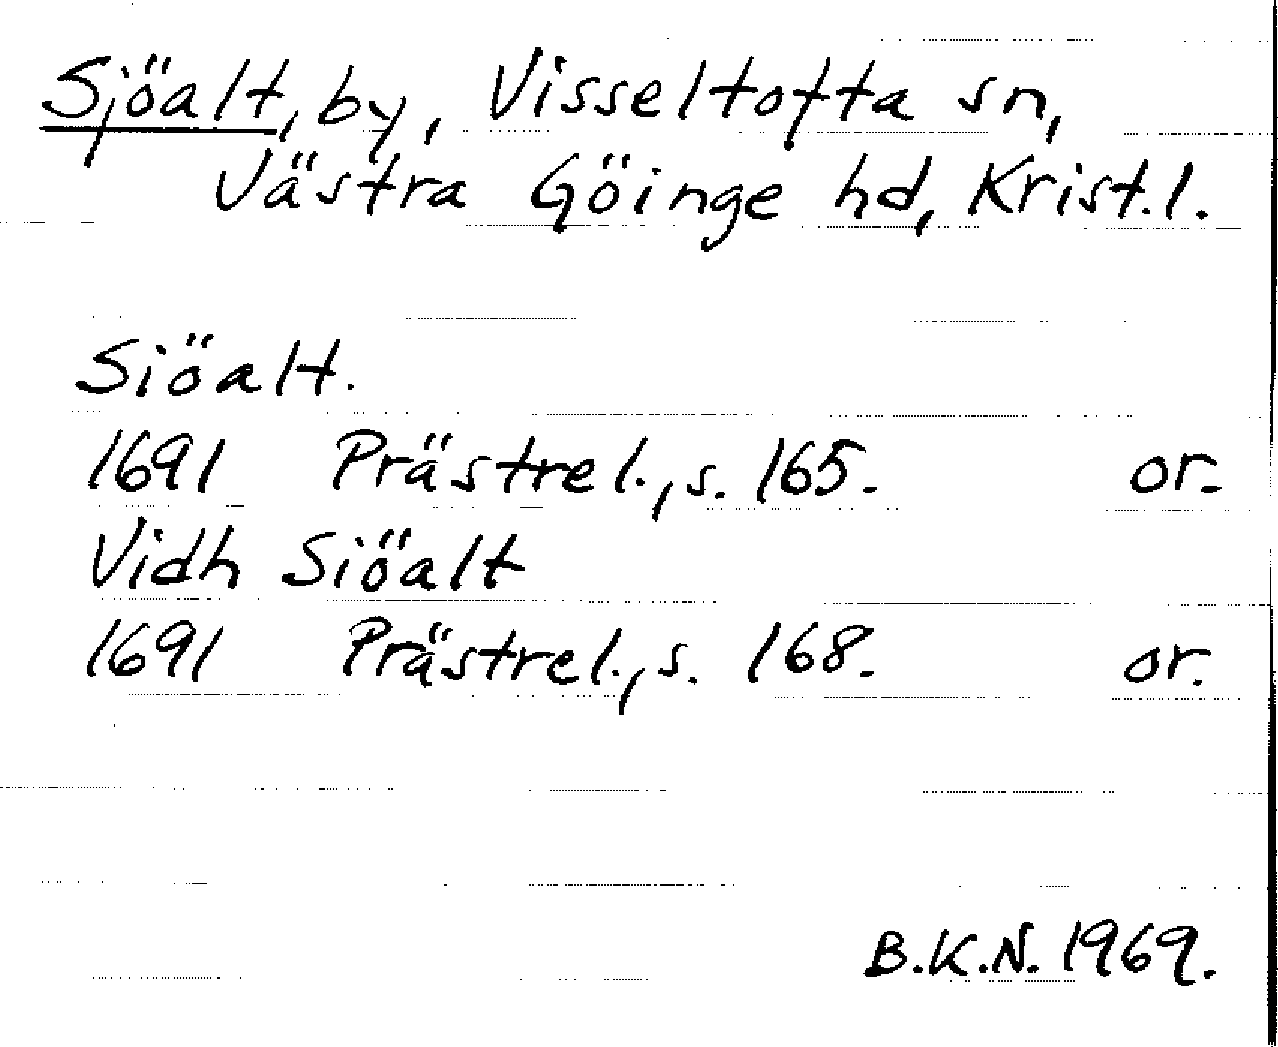 Sjöalt, by, Visseltofta sn,
Västra Göinge hd, Krist.l.
Siöalt.
1691 Prästrel., s. 165. or.
Vidh Siöalt
1691 Prästrel., s. 168. or.
B.K.N. 1969.